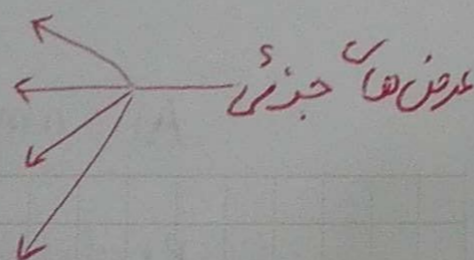 عرض‌های جزئی